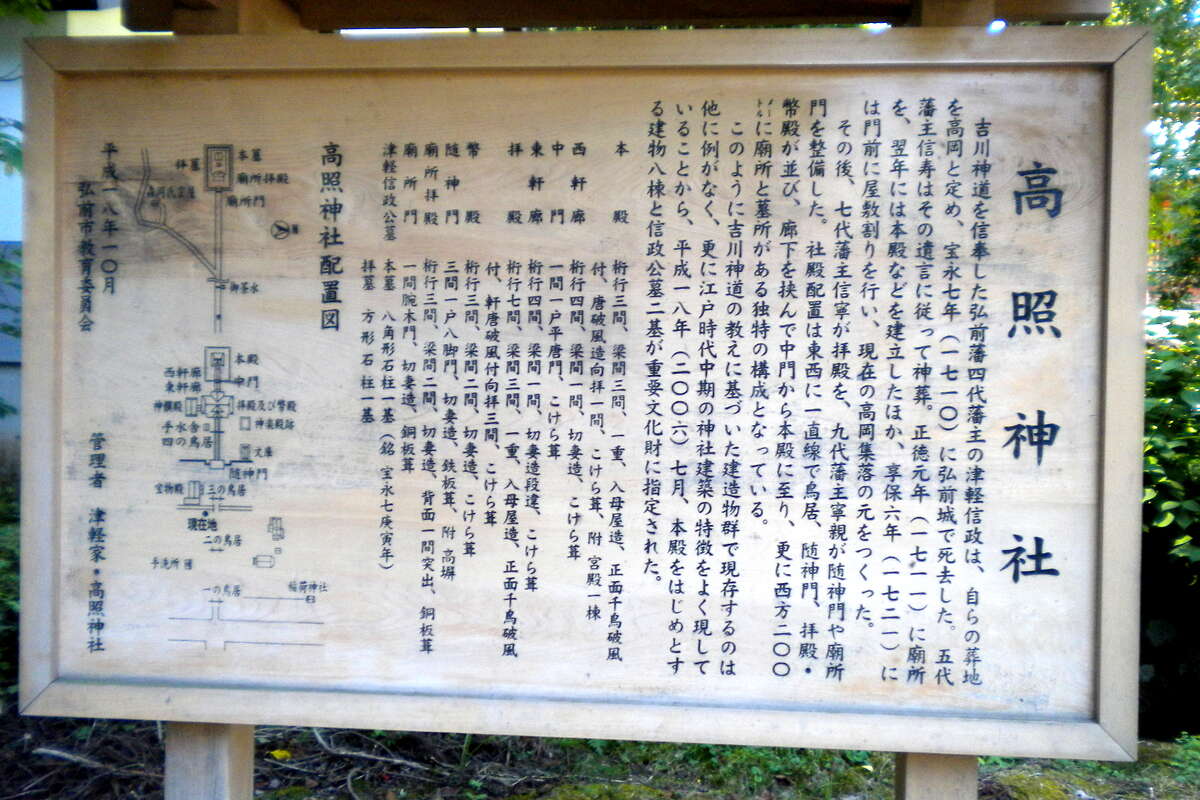 高照神社
吉川神道を信奉した弘前藩四代藩主の津軽信政は、自らの葬地
を高岡と定め、宝永七年（一七一〇）に弘前城で死去した。五代
藩主信寿はその遺言に従って神葬。正徳元年（一七一一）に廟所
を、翌年には本殿などを建立したほか、享保六年（一七二一）に
は門前に屋敷割りを行い、現在の高岡集落の元をつくった。
その後、七代藩主信寧が拝殿を、九代藩主寧親が随神門や廟所
門を整備した。社殿配置は東西に一直線で鳥居、随神門、拝殿・
幣殿が並び、廊下を挟んで中門から本殿に至り、更に西方二〇〇
メートルに廟所と墓所がある独特の構成となっている。
このように吉川神道の教えに基づいた建造物群で現存するのは
他に例がなく、更に江戸時代中期の神社建築の特徴をよく現して
いることから、平成一八年（二〇〇六）七月、本殿をはじめとす
る建物八棟と信政公墓二基が重要文化財に指定された。
本殿 桁行三間、梁間三問、一重、入母屋造、正面千鳥破風
付、唐破風造向拝一間、こけら葺、附 宮殿一棟
西軒廊 桁行四間、梁間一間、切妻造、こけら葺
中門 一間一戸平唐門、こけら葺
東軒廊 桁行四間、梁間一間、切妻造段違、こけら葺
拝殿 桁行七間、梁間三間、一重、入母屋造、正面千鳥破風
付、軒唐破風付向拝三間、こけら葺
幣殿 桁行三間、梁間二間、切妻造、こけら葺
随神門 三間一戸八脚門、切妻造、鉄板葺、附 高塀
廟所拝殿 桁行三間、梁間二間、切妻造、背面一間突出、銅板葺
廟所門 一間腕木門、切妻造、銅板葺
津軽信政公墓 本墓 八角形石柱一基（銘 宝永七庚寅年）
拝墓 方形石柱一基
高照神社配置図
本墓
廟所拝殿
拝墓
廟所門
御茶水
本殿
中門
西軒廊
東軒廊
拝殿及び幣殿
神饌殿
神楽殿跡
手水舎
四の鳥居
文庫
随神門
宝物殿
三の鳥居
現在地
二の鳥居
手洗所
稲荷神社
一の鳥居
平成一八年一〇月
弘前市教育委員会
管理者 津軽家・高照神社